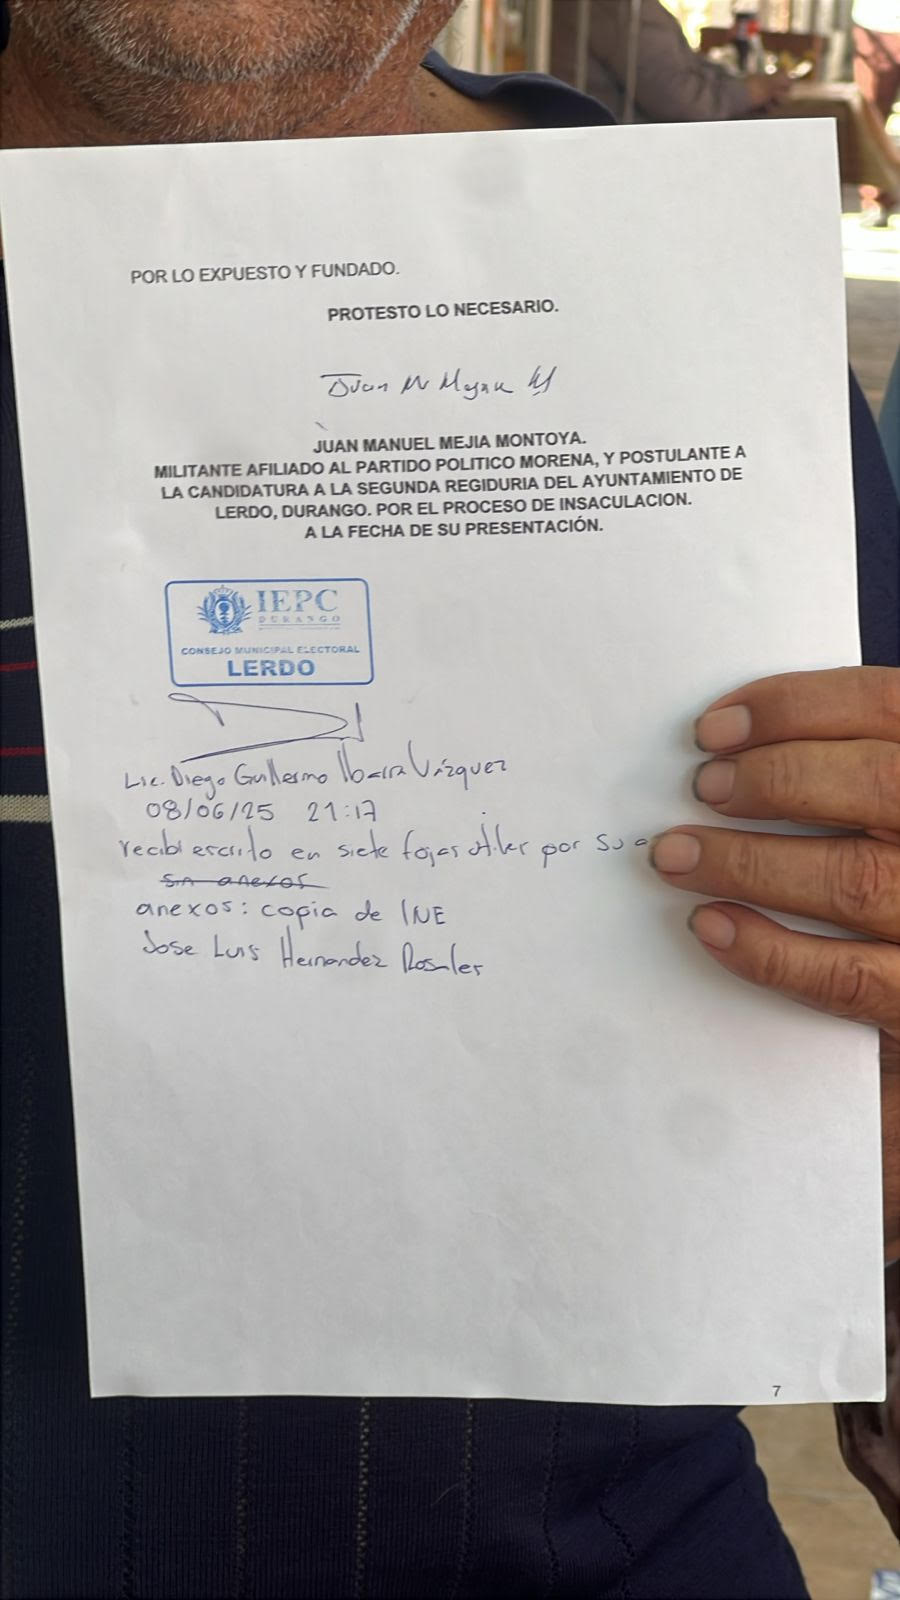 POR LO EXPUESTO Y FUNDADO.
PROTESTO LO NECESARIO.
Juan M
JUAN MANUEL MEJIA MONTOYA.
MILITANTE AFILIADO AL PARTIDO POLITICO MORENA, Y POSTULANTE A
LA CANDIDATURA A LA SEGUNDA REGIDURIA DEL AYUNTAMIENTO DE
LERDO, DURANGO. POR EL PROCESO DE INSACULACION.
A LA FECHA DE SU PRESENTACIÓN.
IEPC
DURANGO
CONSEJO MUNICIPAL ELECTORAL
LERDO
Lic. Diego Guillermo Ibarra Vázquez
08/06/25 21:17
recibi escrito en siete fojas útiles por su
sin anexos
anexos: copia de INE
Jose Luis Hernandez Rosales
7